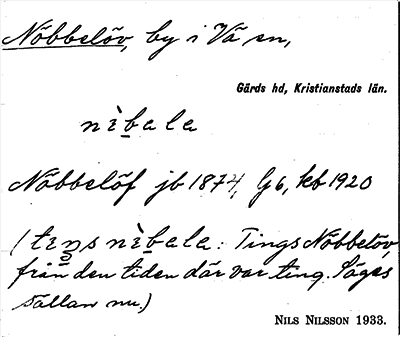 Nöbbelöv, by i Vä sn,
Gärds hd, Kristianstads län.
nèbala
Nöbbelöf jb 1874, G6, kb 1920
(teŋs nèbala: Tings Nöbbelöv,
från den tiden där var ting. Säges
sällan nu.)
NILS NILSSON 1933.